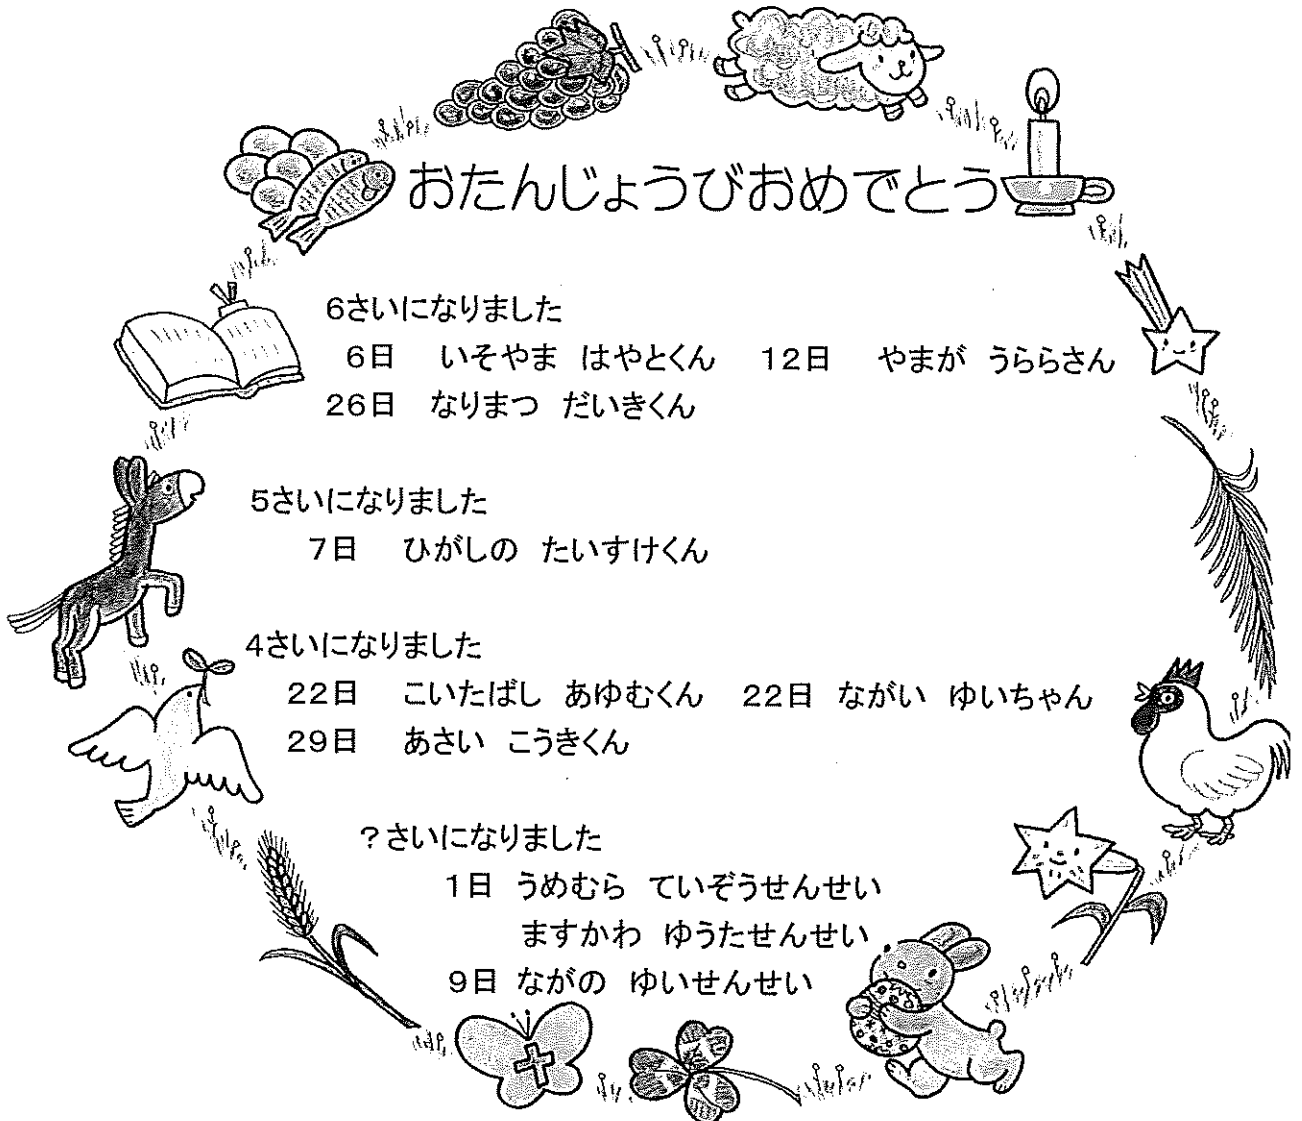 おたんじょうびおめでとう
6さいになりました
6日 いそやま はやとくん 12日 やまが うららさん
26日 なりまつ だいきくん
5さいになりました
7日 ひがしの たいすけくん
4さいになりました
22日 こいたばし あゆむくん 22日 ながい ゆいちゃん
29日 あさい こうきくん
?さいになりました
1日 うめむら ていぞうせんせい
ますかわ ゆうたせんせい
9日 ながの ゆいせんせい